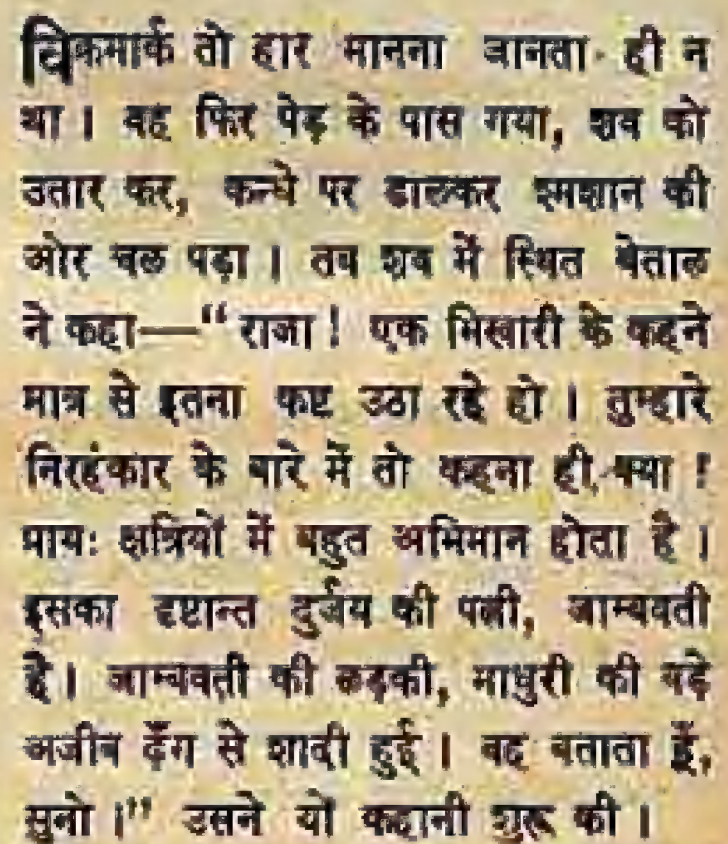 विक्रमार्क तो हार मानना जानता ही न
था । वह फिर पेड़ के पास गया, शव को
उतार कर, कन्धे पर डालकर श्मशान की
ओर चल पड़ा । तब शव में स्थित बेताल
ने कहा—“राजा ! एक भिखारी के कहने
मात्र से इतना कष्ट उठा रहे हो । तुम्हारे
निरहंकार के बारे में तो कहना ही क्या !
प्रायः क्षत्रियों में बहुत अभिमान होता है ।
इसका दृष्टान्त दुर्जय की पत्नी, जाम्बवती
है । जाम्बवती की लड़की, माधुरी की बड़े
अजीब ढँग से शादी हुई । वह बताता हूँ,
सुनो ।” उसने यों कहानी शुरू की ।